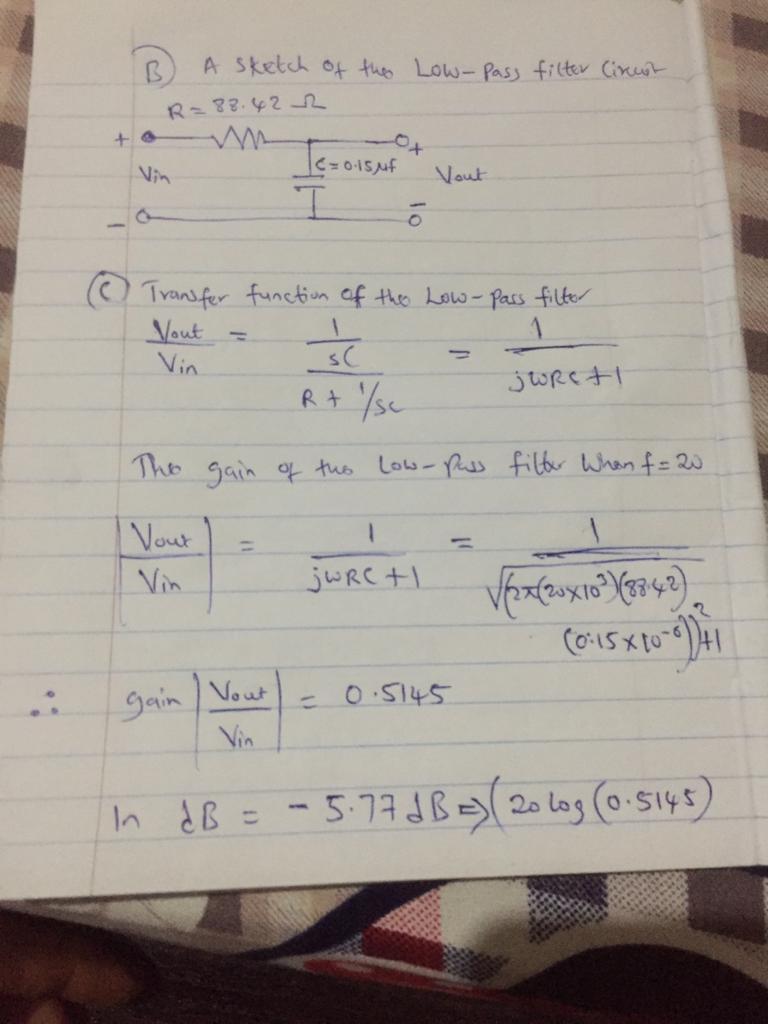 (B) A sketch of the Low-Pass filter Circuit
R = 88.42 Ω
+ +
C = 0.15 μf
Vin Vout
- -
(C) Transfer function of the Low-Pass filter
Vout/Vin = (1/sC)/(R + 1/sC) = 1/(jωRC + 1)
The gain of the Low-Pass filter When f = 20
|Vout/Vin| = 1/(jωRC + 1) = 1/√(2π(20×10³)(88.42)
(0.15×10⁻⁶))²+1
∴ gain |Vout/Vin| = 0.5145
In dB = - 5.77 dB ⇒ (20 log (0.5145)